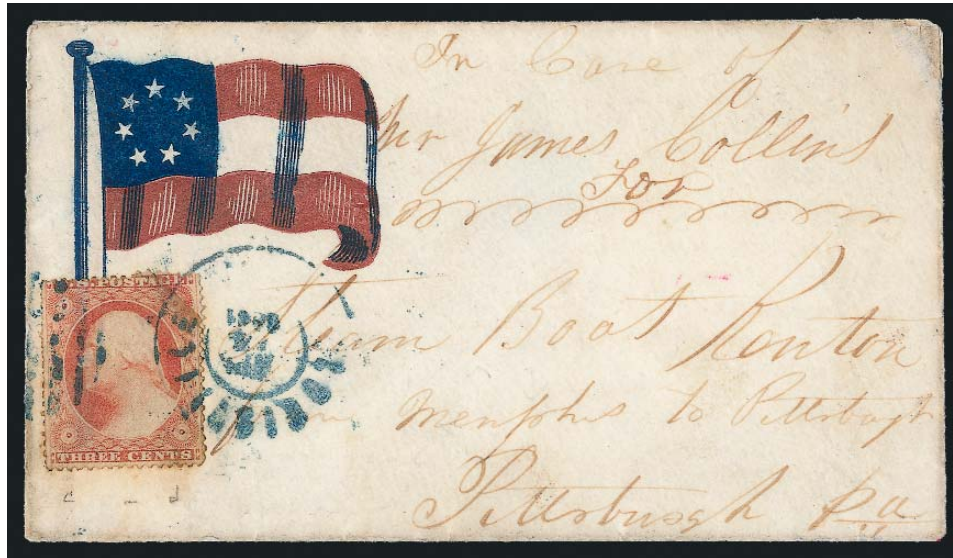 In Care of
Mr James Collins
For
Steam Boat Kenton
from Memphis to Pittsburgh
Pittsburgh Pa
U.S. POSTAGE
THREE CENTS